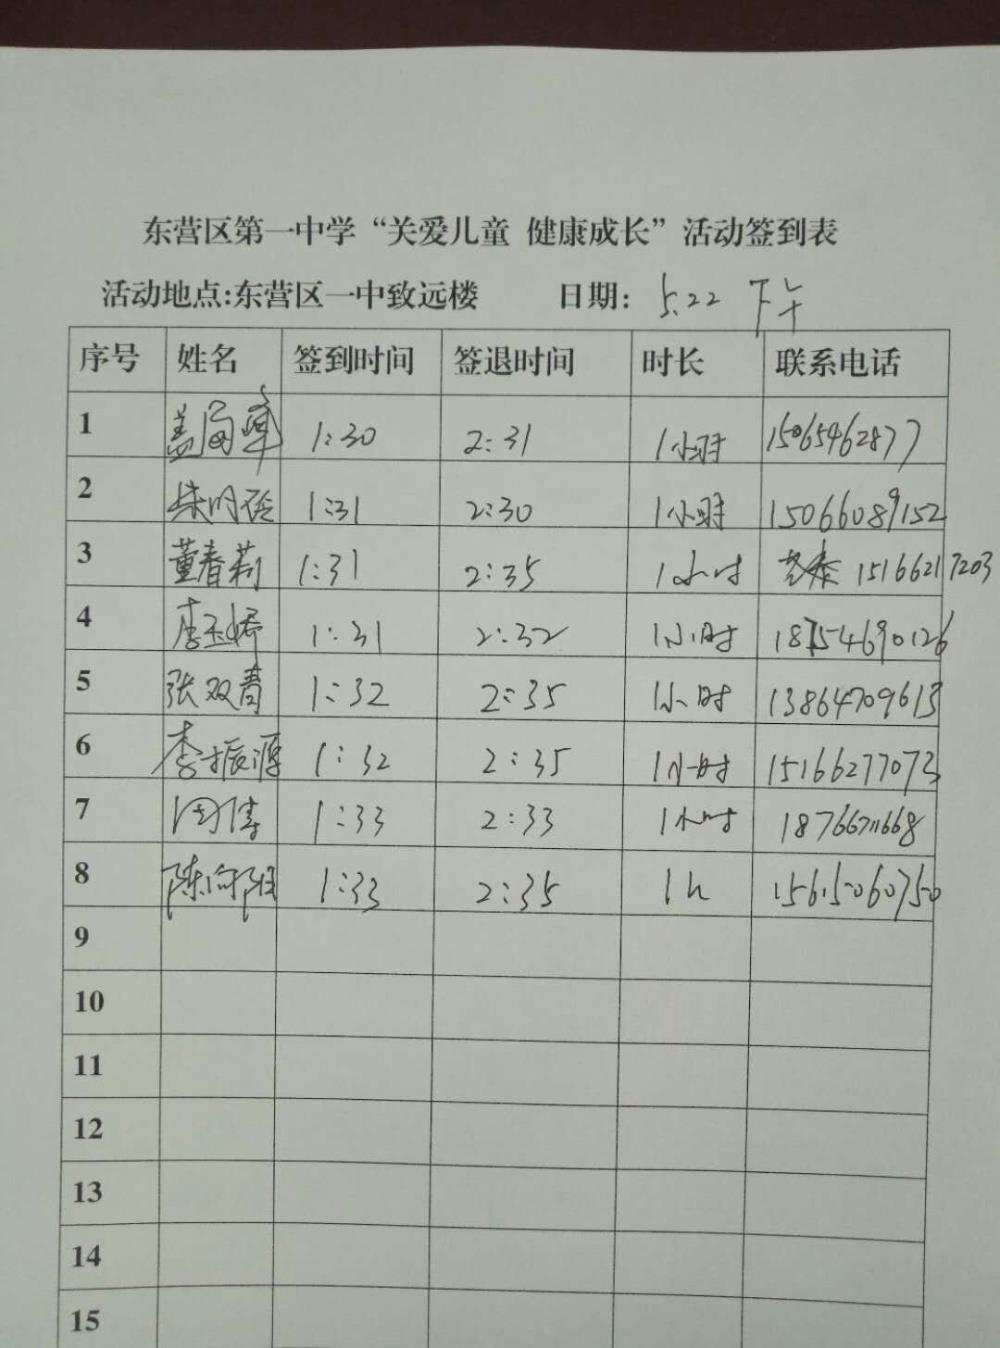 东营区第一中学“关爱儿童 健康成长”活动签到表
活动地点:东营区一中致远楼 日期: 5.22 下午
序号 姓名 签到时间 签退时间 时长 联系电话
1 盖 1:30 2:31 1小时 15065462877
2 1:31 2:30 1小时 15066089152
3 董春莉 1:31 2:35 1小时 15166217203
4 李玉婷 1:31 2:32 1小时 18754690126
5 张双青 1:32 2:35 1小时 13864709613
6 李振源 1:32 2:35 1小时 15166277073
7 周倩 1:33 2:33 1小时 18766711668
8 陈向阳 1:33 2:35 1h 15615060750
9
10
11
12
13
14
15